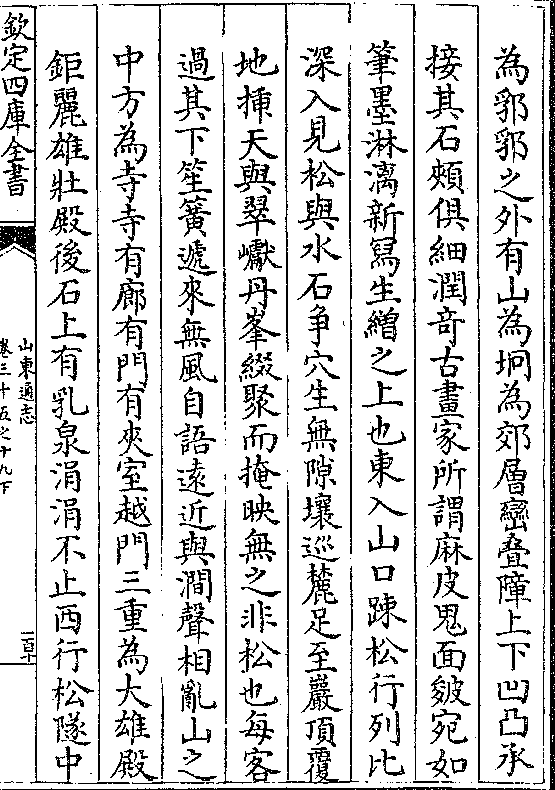 為郛郭之外有山為坰為郊層巒疊障上下凹凸承
接其石頰俱細潤奇古畫家所謂麻皮鬼面皴宛如
筆墨淋漓新寫生繒之上也東入山口疎松行列比
深入見松與水石争穴生無隙壤巡麓足至巖頂覆
地揷天與翠巘丹峯綴聚而掩映無之非松也每客
過其下笙簧遞來無風自語遠近與澗聲相亂山之
中方為寺寺有廊有門有夾室越門三重為大雄殿
鉅麗雄壯殿後石上有乳泉涓涓不止西行松隧中
欽定四庫全書
山東通志
卷三十五之十九下